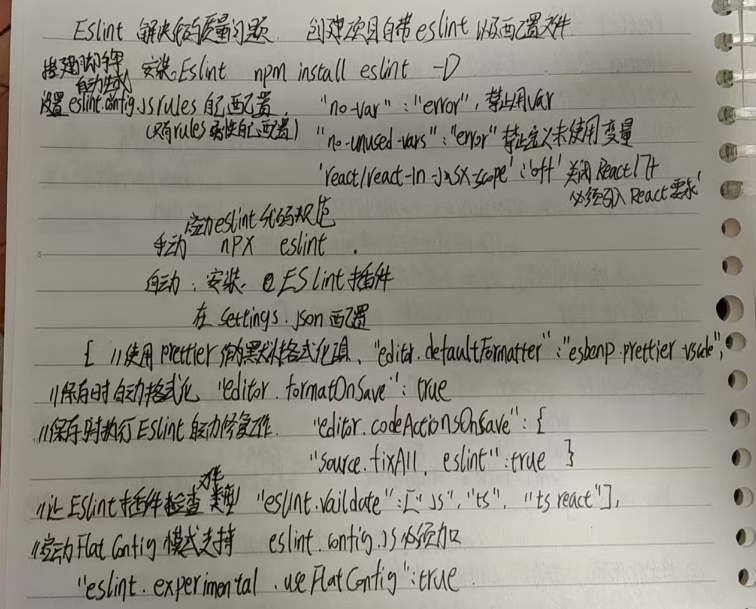 Eslint 解决代码质量问题. 创建项目自带eslint以及配置文件
搭建脚手架
自动生成 安装Eslint npm install eslint -D
设置eslint.config.js rules 自己配置. "no-var":"error", 禁止用var
(只有rules 属性自己配置) "no-unused-vars":"error" 禁止定义未使用变量
'react/react-in-jsx-scope':'off' 关闭React17+
必须引入React要求
启动eslint代码规范
手动 npx eslint .
自动: 安装 ESlint插件
在 settings.json 配置
{ //使用prettier作为默认格式化项, "editor.defaultFormatter":"esbenp.prettier-vscode",
//保存时自动格式化 "editor.formatOnSave": true
//保存时执行ESlint自动修复操作. "editor.codeActionsOnSave": {
"source.fixAll.eslint":true }
//让Eslint插件检查文件类型 "eslint.vaildate":["js", "ts", "tsreact"],
//启动Flat Config 模式支持 eslint.config.js必须加
"eslint.experimental.useFlatConfig":true